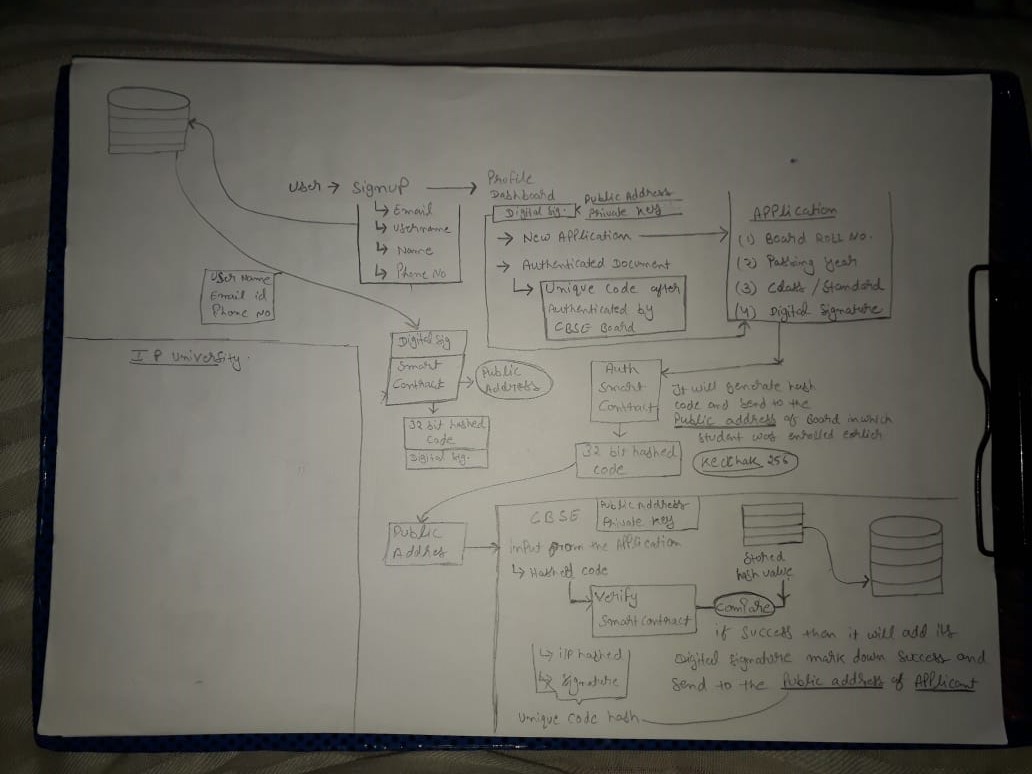 User → Signup → Profile
Dashboard
Digital Sig. Public Address
Private key
↳ Email
↳ Username
↳ Name
↳ Phone No
→ New Application
→ Authenticated Document
↳ Unique Code after
Authenticated by
CBSE Board
APPlication
(1) Board Roll No.
(2) Passing year
(3) Class / Standard
(4) Digital Signature
User Name
Email id
Phone No
I P University.
Digital Sig
Smart
Contract
Public
Address
32 bit hashed
Code
Digital Sig.
Auth
Smart
Contract
It will generate hash
code and send to the
Public address of Board in which
student was enrolled earlier
32 bit hashed
code
Keckhak 256
Public
Addres
CBSE
Public Address
Private key
input from the Application
↳ Hashed code
Verify
Smart Contract
Compare
Stored
hash value
if Success than it will add its
Digital signature mark down success and
send to the Public address of Applicant
↳ i/p hashed
↳ Signature
Unique code hash